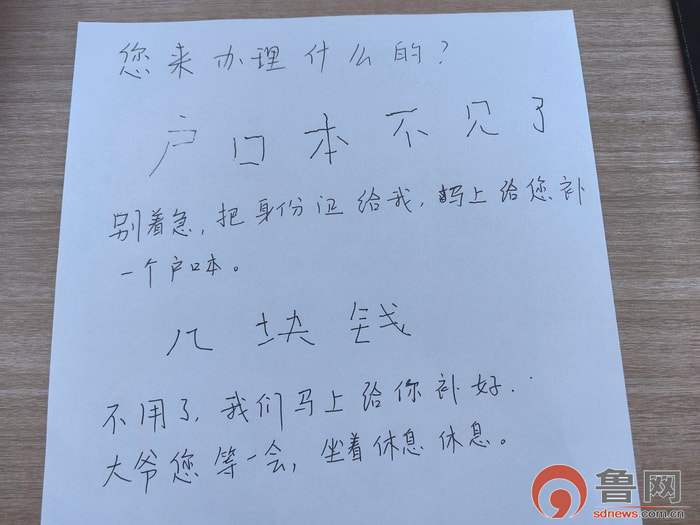 您来办理什么的?
户口本不见了
别着急,把身份证给我,马上给您补
一个户口本。
几块钱
不用了,我们马上给你补好.
大爷您等一会,坐着休息休息。
鲁网
sdnews.com.cn